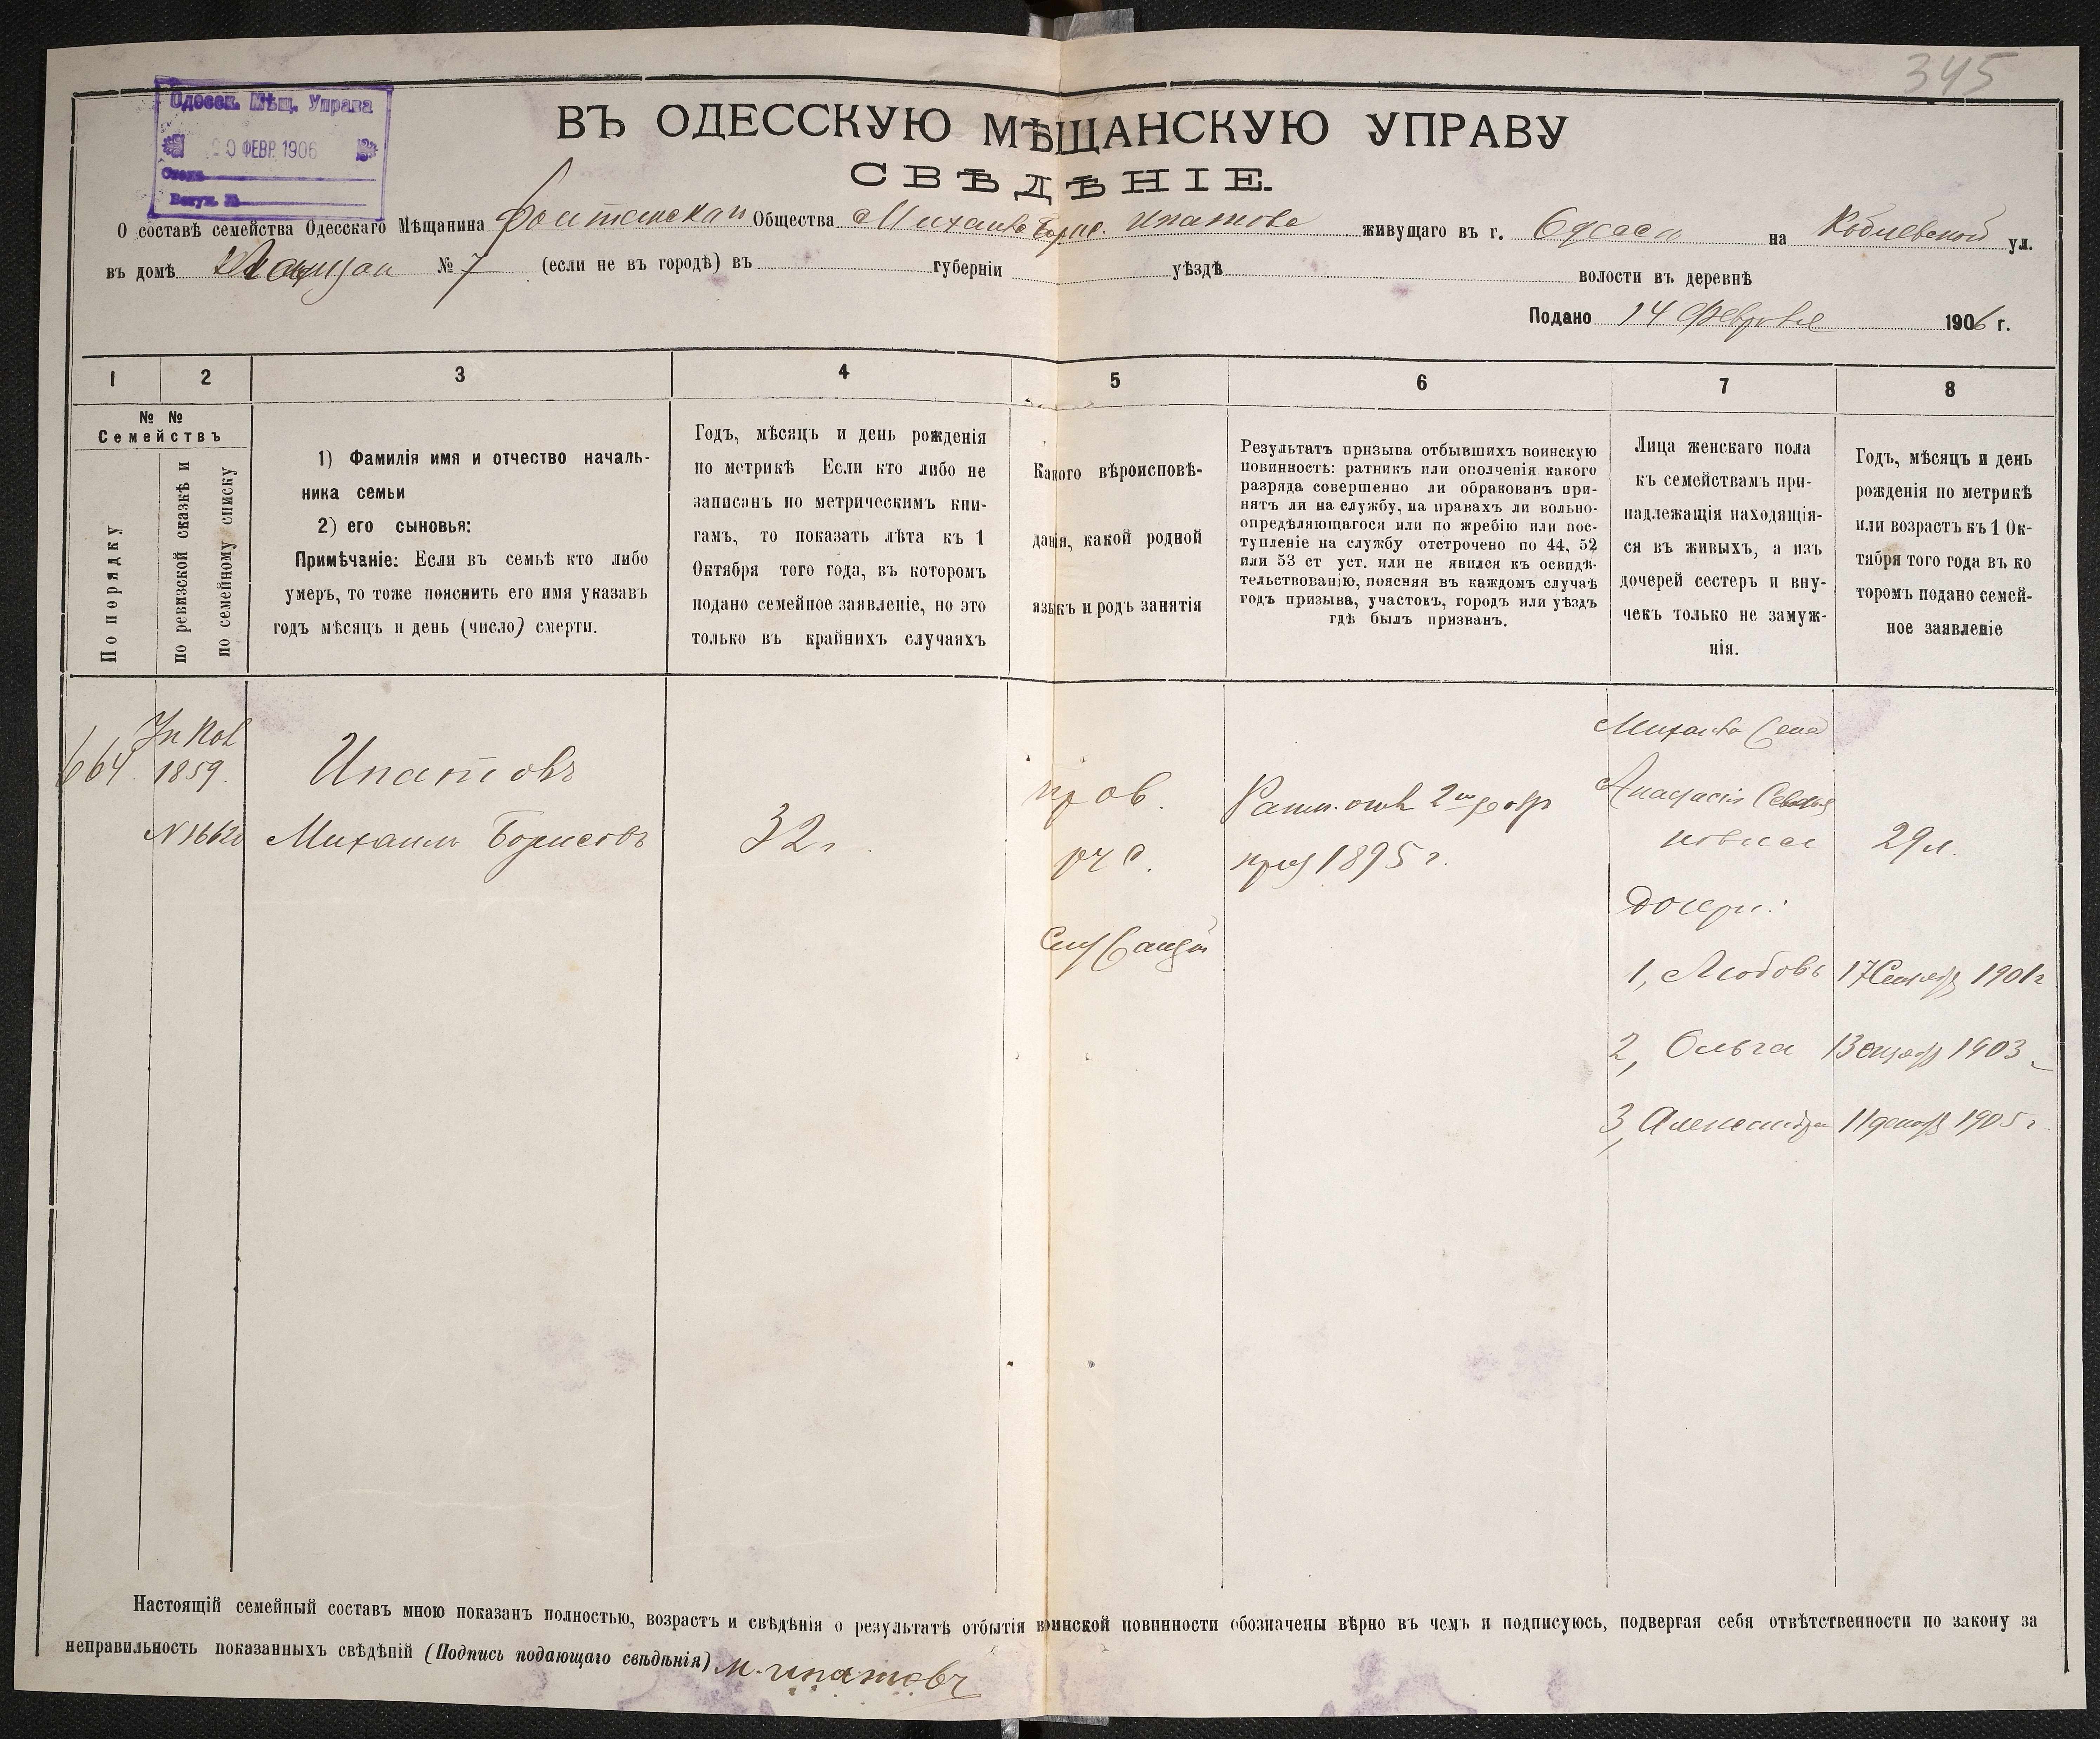 345
Одесск. Мѣщ. Управа
20 ФЕВР. 1906
Вход. №
ВЪ ОДЕССКУЮ МѢЩАНСКУЮ УПРАВУ
СВѢДѢНІЕ.
О составѣ семейства Одесскаго Мѣщанина Общества Михаила Борис. Ипатова живущаго въ г. Одесса на Коблевской ул.
въ домѣ № 7 (если не въ городѣ) въ губерніи уѣздѣ волости въ деревнѣ
Подано 14 Февраля 1906 г.
1 2 3 4 5 6 7 8
№ №
Семействъ
По порядку
по ревизской сказкѣ и
по семейному списку
1) Фамилія имя и отчество началь-
ника семьи
2) его сыновья:
Примѣчаніе: Если въ семьѣ кто либо
умеръ, то тоже пояснить его имя указавъ
годъ мѣсяцъ и день (число) смерти.
Годъ, мѣсяцъ и день рожденія
по метрикѣ Если кто либо не
записанъ по метрическимъ кни-
гамъ, то показать лѣта къ 1
Октября того года, въ которомъ
подано семейное заявленіе, но это
только въ крайнихъ случаяхъ
Какого вѣроисповѣ-
данія, какой родной
языкъ и родъ занятія
Результатъ призыва отбывшихъ воинскую
повинность: ратникъ или ополченія какого
разряда совершенно ли обракованъ при-
нятъ ли на службу, на правахъ ли вольно-
опредѣляющагося или по жребію или пос-
тупленіе на службу отстрочено по 44, 52
или 53 ст уст. или не явился къ освидѣ-
тельствованію, поясняя въ каждомъ случаѣ
годъ призыва, участокъ, городъ или уѣздъ
гдѣ былъ призванъ.
Лица женскаго пола
къ семействамъ при-
надлежащія находящія-
ся въ живыхъ, а изъ
дочерей сестеръ и вну-
чекъ только не замуж-
нія.
Годъ, мѣсяцъ и день
рожденія по метрикѣ
или возрастъ къ 1 Ок-
тября того года въ ко
торомъ подано семей-
ное заявленіе
664
1859.
N 16620
Ипатовъ
Михаилъ Борисовъ
32 г.
прав.
рус.
Ратн. опол. 2го разр
приз 1895 г.
Михаила жена
Анастасія
29 л.
Дочери:
1, Любовь 17 Сентяб 1901 г
2, Ольга 1903
3, Александра 11 декаб 1905 г.
Настоящій семейный составъ мною показанъ полностью, возрастъ и свѣдѣнія о результатѣ отбытія воинской повинности обозначены вѣрно въ чемъ и подписуюсь, подвергая себя отвѣтственности по закону за
неправильность показанныхъ свѣдѣній (Подпись подающаго свѣдѣнія) М. Ипатовъ